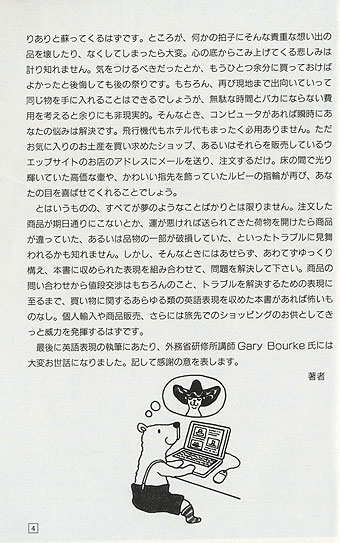 りありと蘇ってくるはずです。ところが、何かの拍子にそんな貴重な想い出の
品を壊したり、なくしてしまったら大変。心の底からこみ上げてくる悲しみは
計り知れません。気をつけるべきだったとか、もうひとつ余分に買っておけば
よかったと後悔しても後の祭りです。もちろん、再び現地まで出向いていって
同じ物を手に入れることはできるでしょうが、無駄な時間とバカにならない費
用を考えると余りにも非現実的。そんなとき、コンピュータがあれば瞬時にあ
なたの悩みは解決です。飛行機代もホテル代もまったく必用ありません。ただ
お気に入りのお土産を買い求めたショップ、あるいはそれらを販売しているウ
エッブサイトのお店のアドレスにメールを送り、注文するだけ。床の間で光り
輝いていた高価な壷や、かわいい指先を飾っていたルビーの指輪が再び、あな
たの目を喜ばせてくれることでしょう。
とはいうものの、すべてが夢のようなことばかりとは限りません。注文した
商品が期日通りにこないとか、運が悪ければ送られてきた荷物を開けたら商品
が違っていた、あるいは品物の一部が破損していた、といったトラブルに見舞
われるかも知れません。しかし、そんなときにはあせらず、あわてずゆっくり
構え、本書に収められた表現を組み合わせて、問題を解決して下さい。商品の
問い合わせから値段交渉はもちろんのこと、トラブルを解決するための表現に
至るまで、買い物に関するあらゆる類の英語表現を収めた本書があれば怖いも
のなし。個人輸入や商品販売、さらには旅先でのショッピングのお供としてき
っと威力を発揮するはずです。
最後に英語表現の執筆にあたり、外務省研修所講師 Gary Bourke 氏には
大変お世話になりました。記して感謝の意を表します。
著者
4